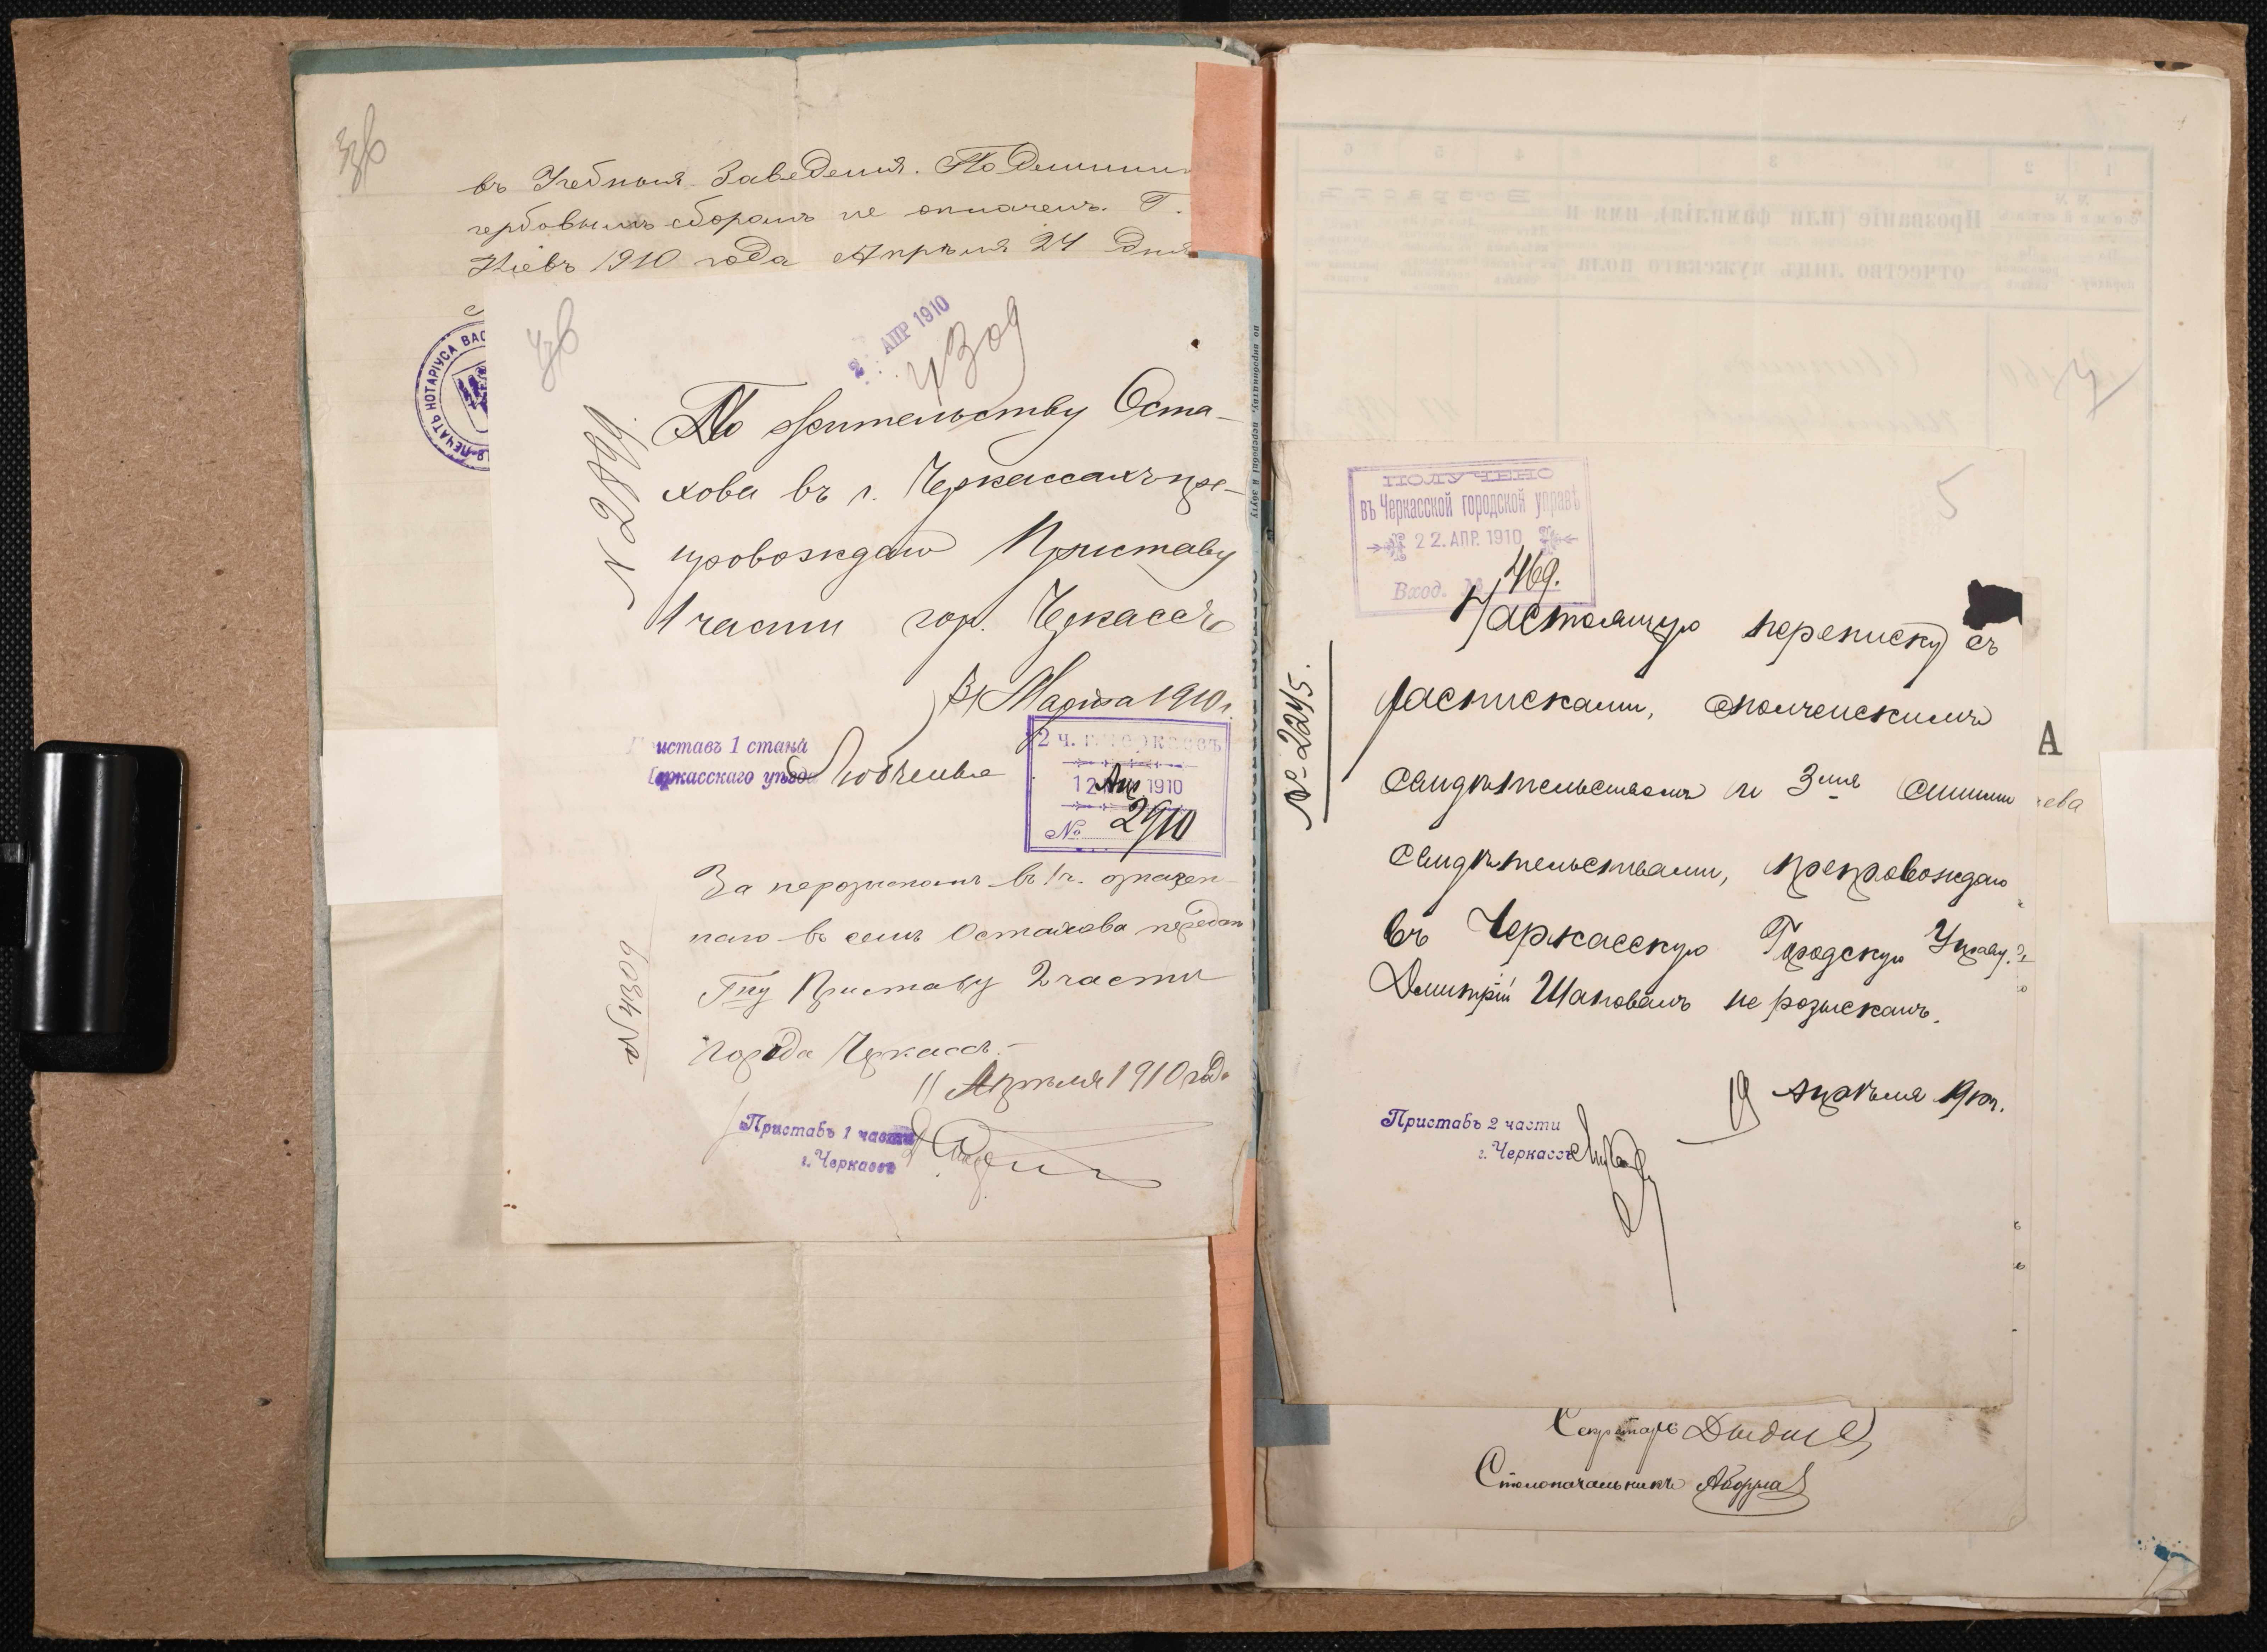 3в
въ Учебныя Заведенія. Подлинникъ
гербовымъ сборомъ не оплаченъ. Г.
Кіевъ 1910 года Апрѣля 24 дня
ПЕЧАТЬ НОТАРІУСА ВАС
4в
2 АПР 1910
4309
N 2899.
По жительству Оста-
хова въ г. Черкассахъ пре-
провождаю Приставу
1 части гор. Черкассъ
31 Марта 1910 г.
Приставъ 1 стана
Черкасскаго уѣзда
2 ч. г. Черкассъ
12 Апр 1910
№ 2910
За нерозыскомъ въ 1 ч. означен-
наго въ семъ Остахова передан
Гну Приставу 2 части
города Черкассъ.-
11 Апрѣля 1910 года
N 4309
Приставъ 1 части
г. Черкассъ
1 2 3 4 5 6
Прозваніе (или фамилія), имя и
отчество лицъ мужескаго пола
Возрастъ
ПОЛУЧЕНО
въ Черкасской городской управѣ
22. АПР. 1910
Вход. № 1469.
5
Настоящую переписку съ
росписками, ополченскимъ
свидѣтельствомъ и 3мя синими
свидѣтельствами, препровождаю
въ Черкасскую Городскую Управу.
Дмитрій Шаповалъ не розысканъ.
19 Апрѣля 1910 г.
№ 2245.
Приставъ 2 части
г. Черкассъ
А
ева
Секретарь
Столоначальникъ